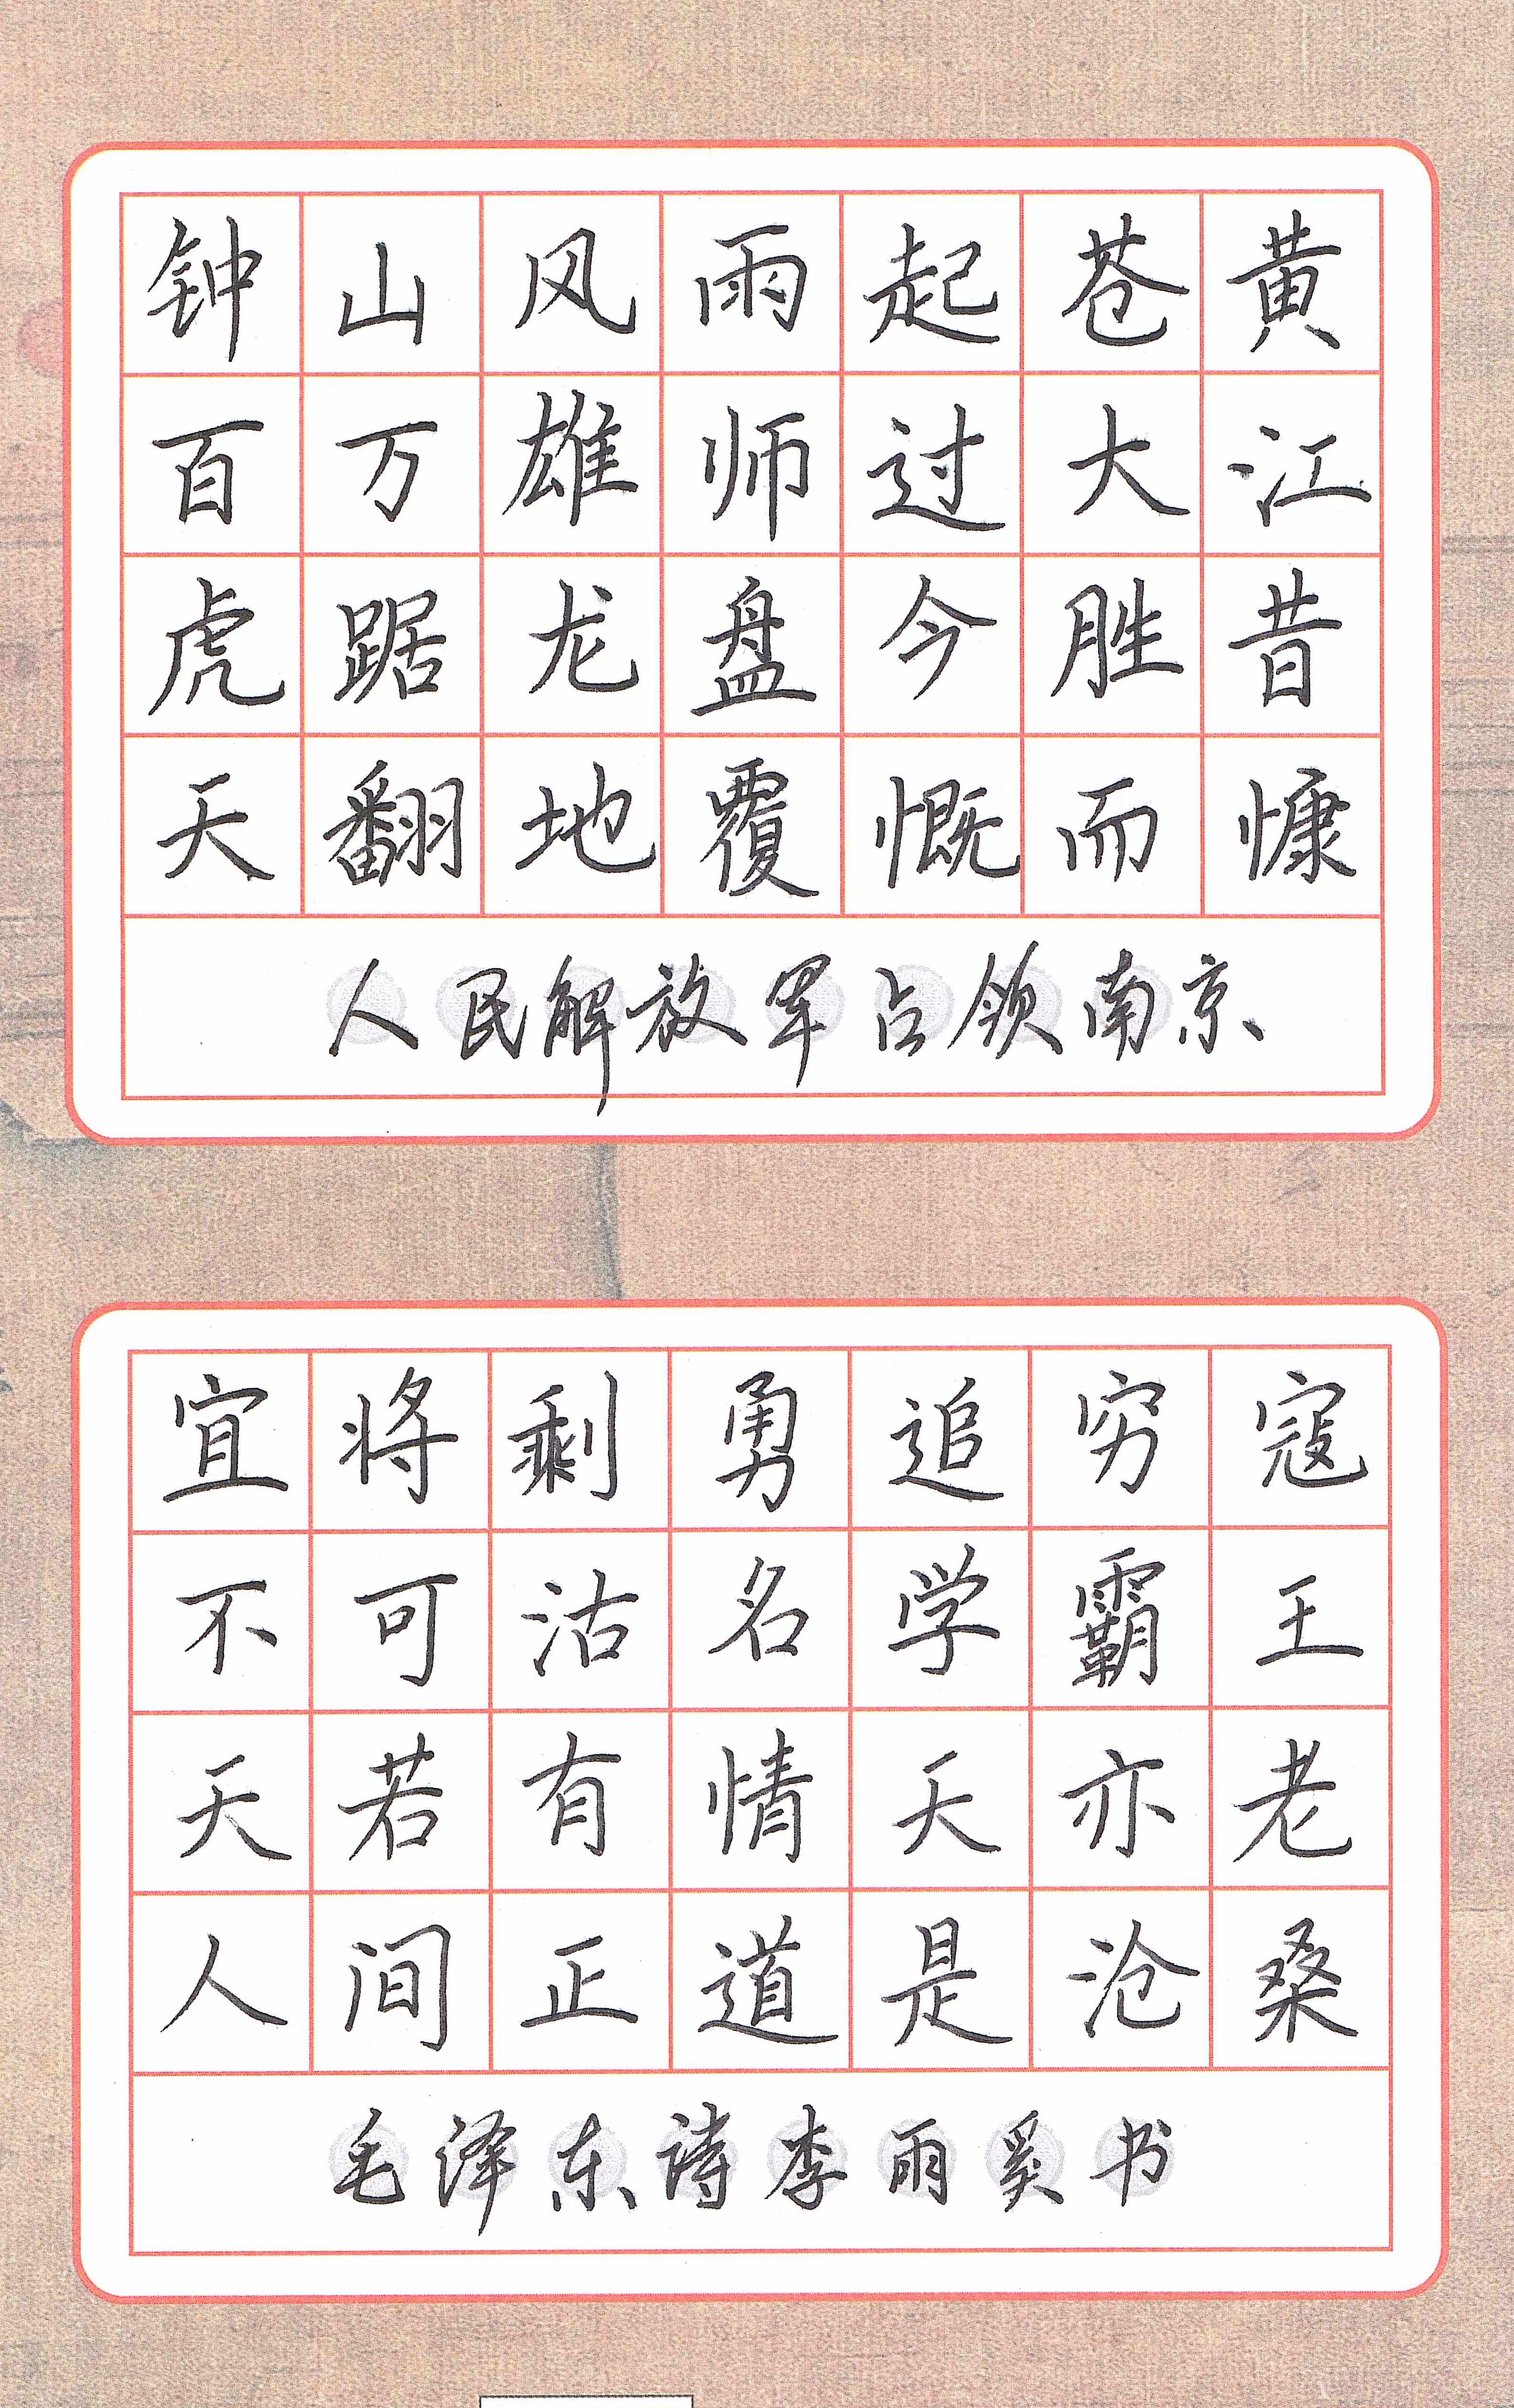 钟山风雨起苍黄
百万雄师过大江
虎踞龙盘今胜昔
天翻地覆慨而慷
人民解放军占领南京
宜将剩勇追穷寇
不可沽名学霸王
天若有情天亦老
人间正道是沧桑
毛泽东诗李雨奚书